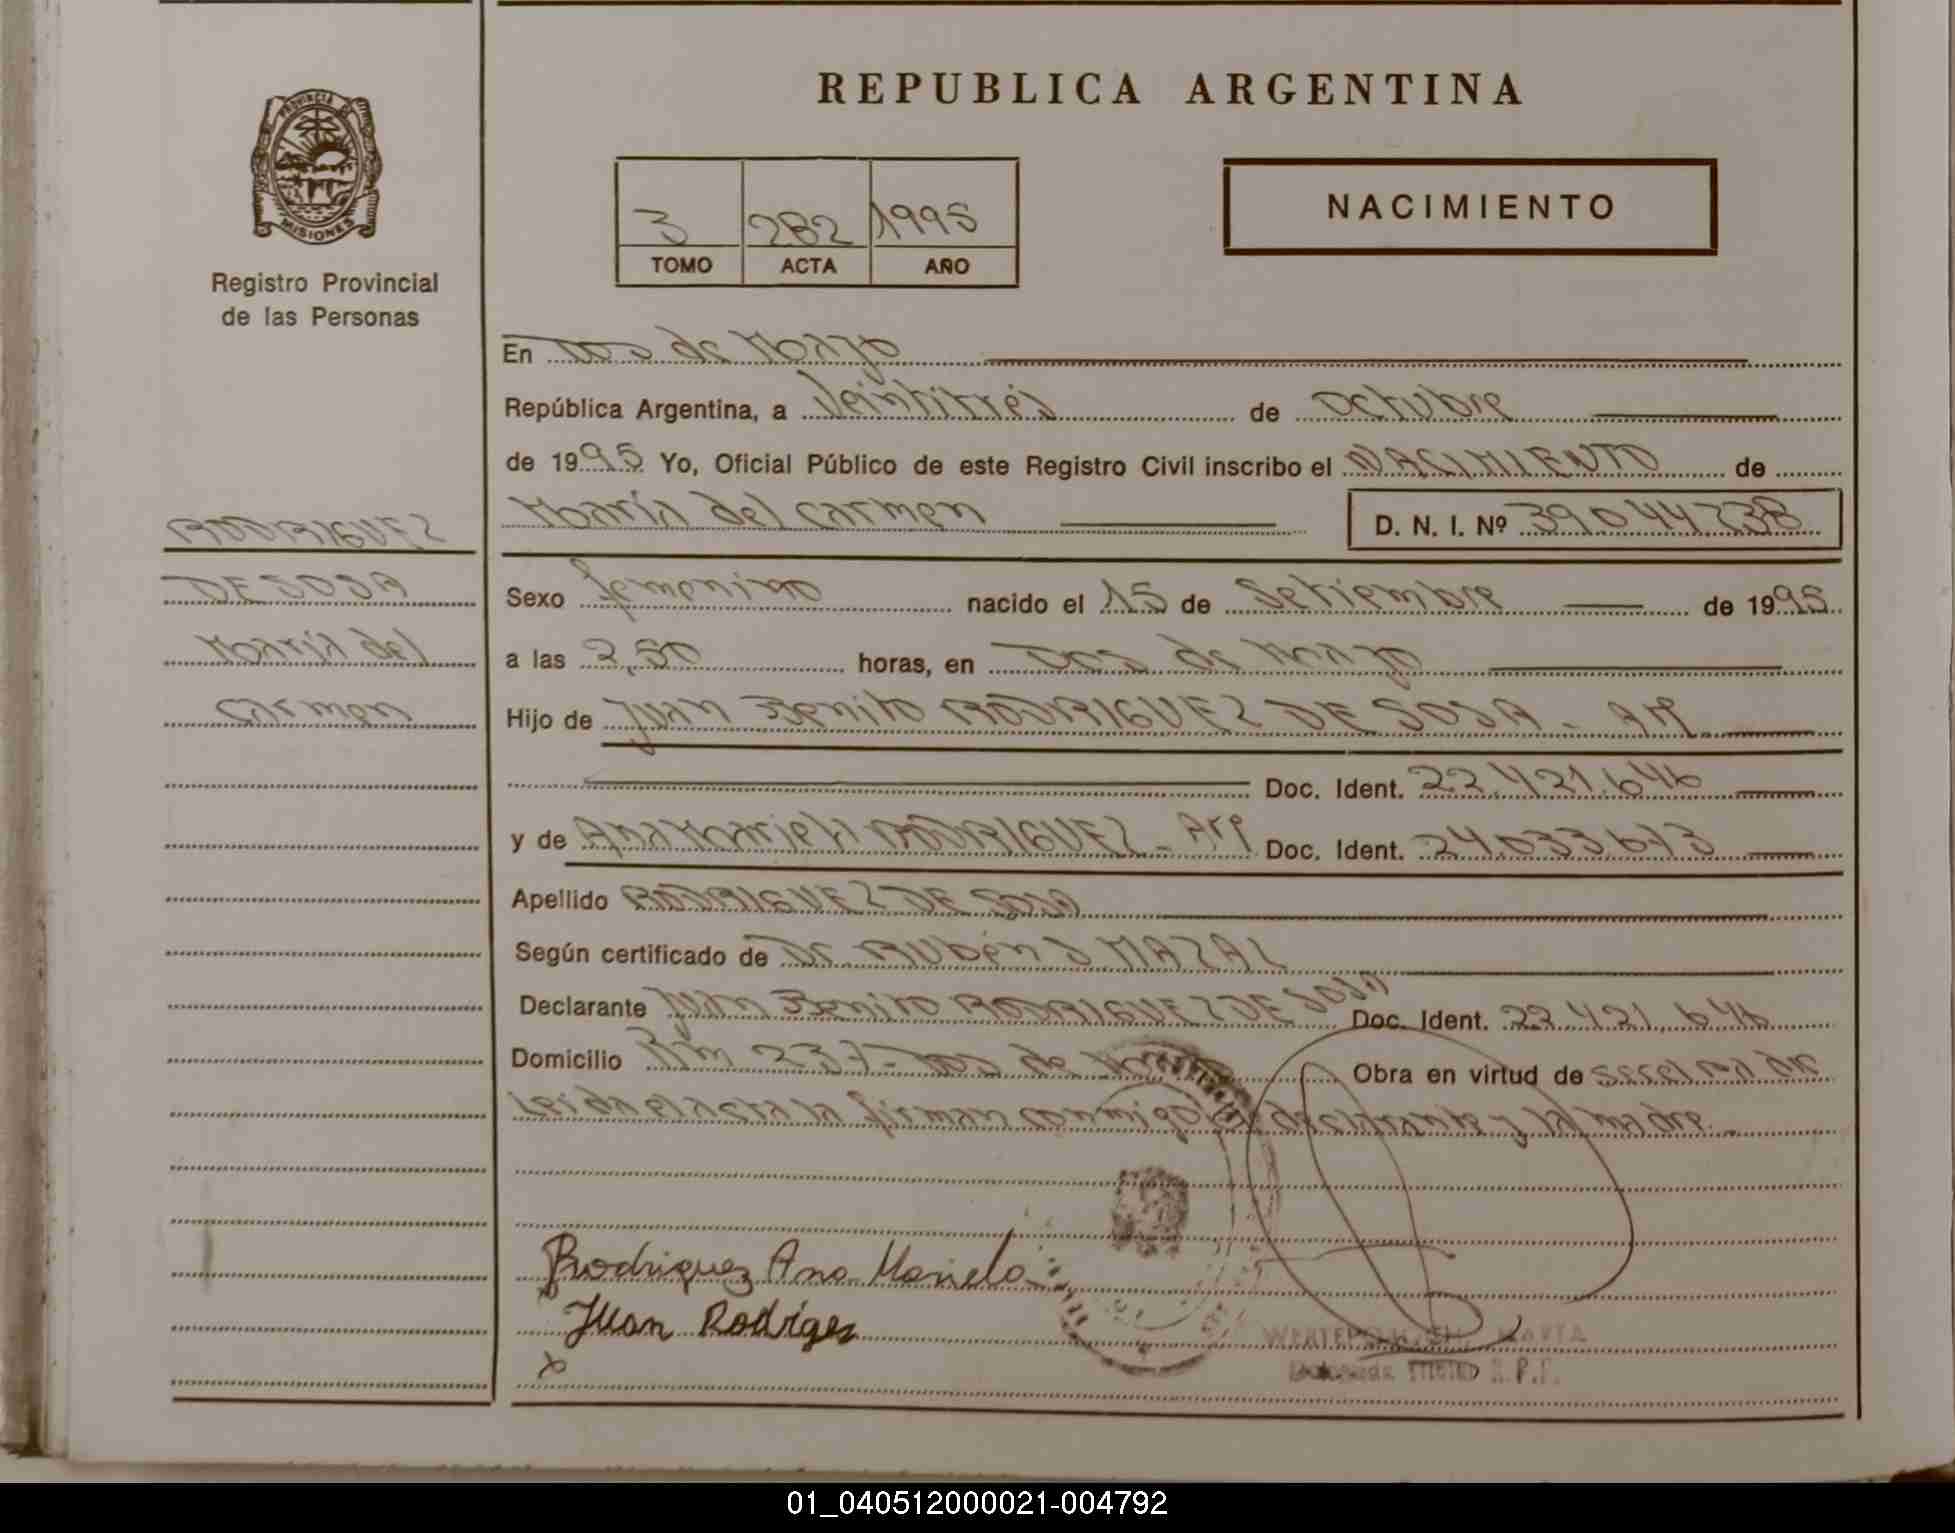 REPUBLICA ARGENTINA
PROVINCIA DE
MISIONES
Registro Provincial
de las Personas
3 282 1995
TOMO ACTA AÑO
NACIMIENTO
En Dos de Mayo
República Argentina, a Veintitrés de octubre
de 1995 Yo, Oficial Público de este Registro Civil inscribo el NACIMIENTO de
María del Carmen D. N. I. Nº 39.044.238
RODRIGUEZ
DE SOSA
María del
Carmen
Sexo femenino nacido el 15 de Setiembre de 1995
a las 2,50 horas, en Dos de Mayo
Hijo de Juan Benito RODRIGUEZ DE SOSA - Arg
Doc. Ident. 22.421.646
y de Ana Mariela RODRIGUEZ - Arg Doc. Ident. 24.033.673
Apellido RODRIGUEZ DE SOSA
Según certificado de Dr. Rubén D MAZAL
Declarante Juan Benito RODRIGUEZ DE SOSA Doc. Ident. 22.421.646
Domicilio Km 237 - Dos de Obra en virtud de
Leída el acta la firman conmigo el declarante y la madre.-
Rodriguez Ana Mariela
Juan Rodriges
x
01_040512000021-004792